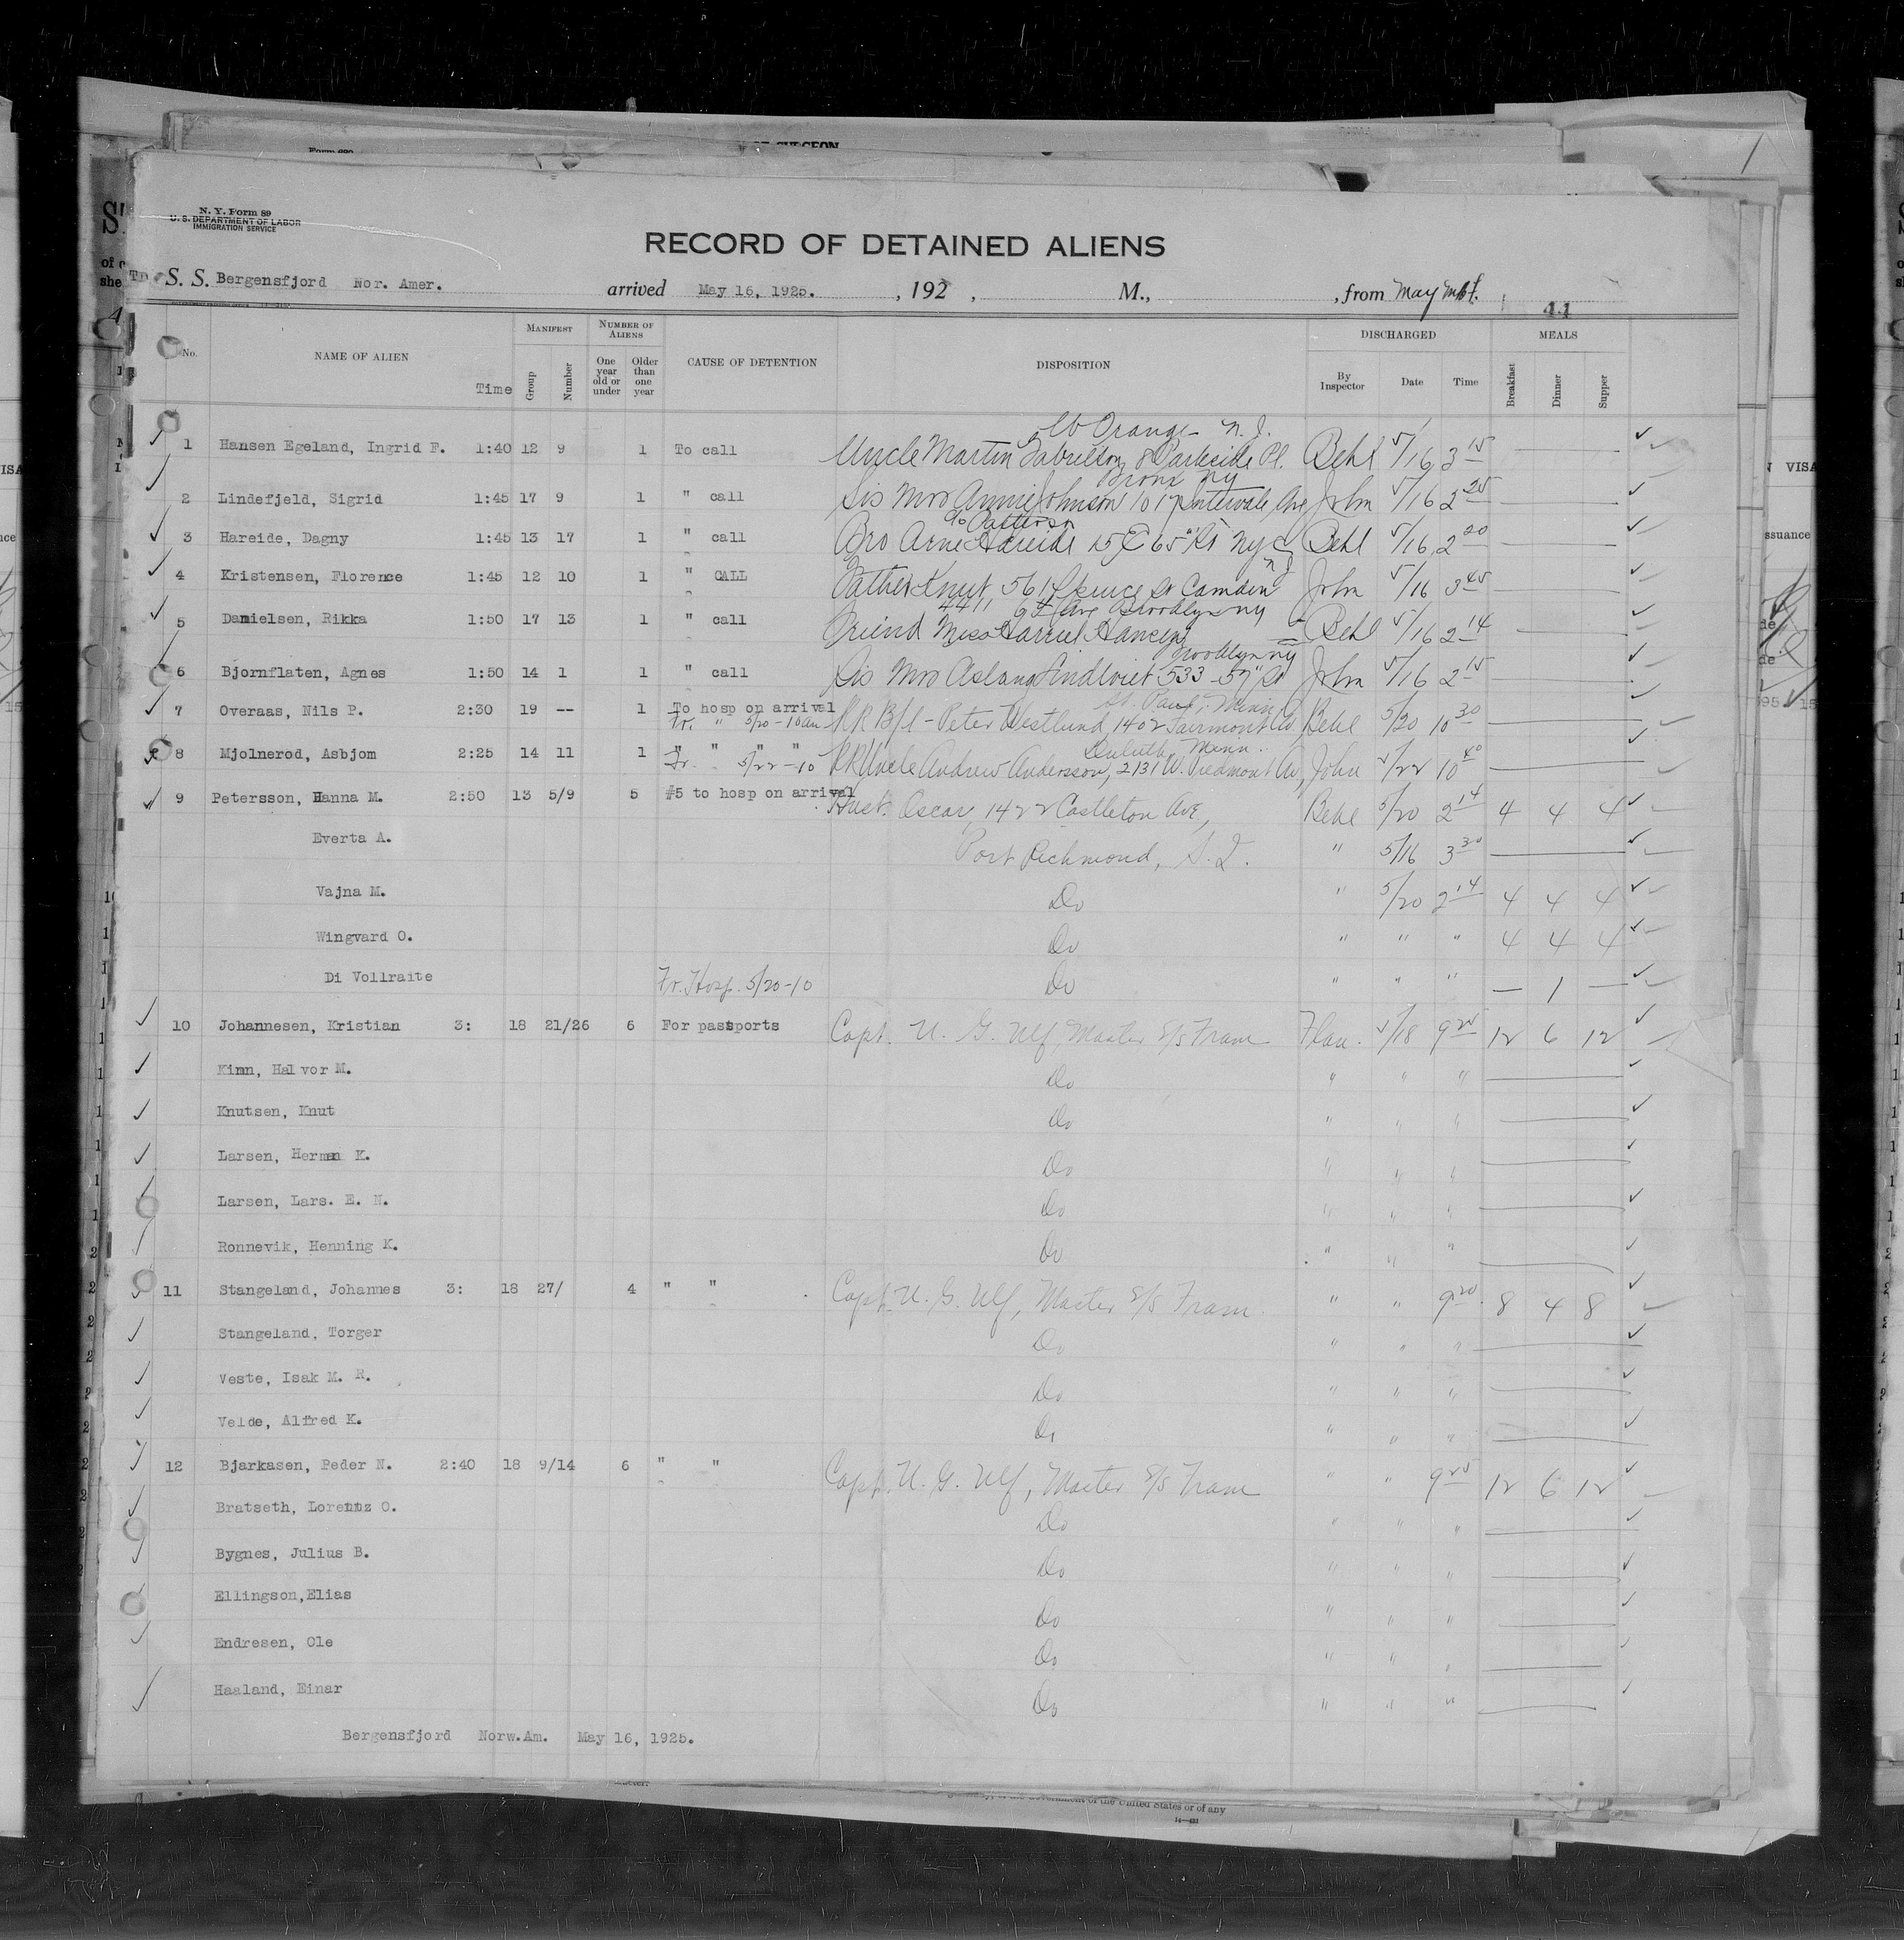 N. Y. Form 89
U. S. DEPARTMENT OF LABOR
IMMIGRATION SERVICE
RECORD OF DETAINED ALIENS
S. S. Bergensfjord Nor. Amer. arrived May 16, 1925. , 192 , M., , from
44
No. NAME OF ALIEN Time MANIFEST Group Number NUMBER OF ALIENS One year old or under Older than one year CAUSE OF DETENTION DISPOSITION DISCHARGED By Inspector Date Time MEALS Breakfast Dinner Supper
W Orange N. J.
1 Hansen Egeland, Ingrid F. 1:40 12 9 1 To call Uncle Martin 8 Parkside Pl. Behl 5/16 3 15
Bronx Ny
2 Lindefjeld, Sigrid 1:45 17 9 1 " call Sis Mrs Annie Johnson 1017 Intervale Ave John 5/16 2 25
c/o Patterson
3 Hareide, Dagny 1:45 13 17 1 " call Bro Arne Hareide 15 E 65" St NyC Behl 5/16 2 20
NJ
4 Kristensen, Florence 1:45 12 10 1 " CALL Father Knut, 561 Spruce St Camden John 5/16 3 45
4411 6th Ave Brooklyn ny
5 Danielsen, Rikka 1:50 17 13 1 " call Friend Miss Harriet Hansen Behl 5/16 2 14
Brooklyn ny
6 Bjornflaten, Agnes 1:50 14 1 1 " call Sis Mrs Aslaug 533 - 57" St John 5/16 2 15
St. Paul, Minn
7 Overaas, Nils P. 2:30 19 -- 1 To hosp on arrival
Fr. " 5/20 - 10am RR B/l - Peter Westlund, 1402 Fairmont Av. Behl 5/20 10 30
Duluth, Minn.
8 Mjolnerod, Asbjom 2:25 14 11 1 " " " "
Fr. " 5/22 - 10 RR Uncle Andrew Andersson, 2131 W. Piedmont Av, John 5/22 10 40
9 Petersson, Hanna M. 2:50 13 5/9 5 #5 to hosp on arrival Husb. Oscar, 1422 Castleton Ave, Behl 5/20 2 14 4 4 4
Everta A. Port Richmond, S. I. " 5/16 3 30
Vajna M. Do " 5/20 2 14 4 4 4
Wingvard O. Do " " " 4 4 4
Di Vollraite Fr. Hosp. 5/20-10 Do " " " — 1 —
10 Johannesen, Kristian 3: 18 21/26 6 For passports Capt. U. G. Ulf, Master S/S Fram 5/18 9 25 12 6 12
Kinn, Halvor M. Do " " "
Knutsen, Knut Do " " "
Larsen, Herman K. Do " " "
Larsen, Lars. E. N. Do " " "
Ronnevik, Henning K. Do " " "
11 Stangeland, Johannes 3: 18 27/ 4 " " Capt. U. G. Ulf, Master S/S Fram " " 9 20 8 4 8
Stangeland, Torger Do " " "
Veste, Isak M. R. Do " " "
Velde, Alfred K. Do " " "
12 Bjarkasen, Peder N. 2:40 18 9/14 6 " " Capt. U. G. Ulf, Master S/S Fram " " 9 25 12 6 12
Bratseth, Lorentz O. Do " " "
Bygnes, Julius B. Do " " "
Ellingson,Elias Do " " "
Endresen, Ole Do " " "
Haaland, Einar Do " " "
Bergensfjord Norw.Am. May 16, 1925.